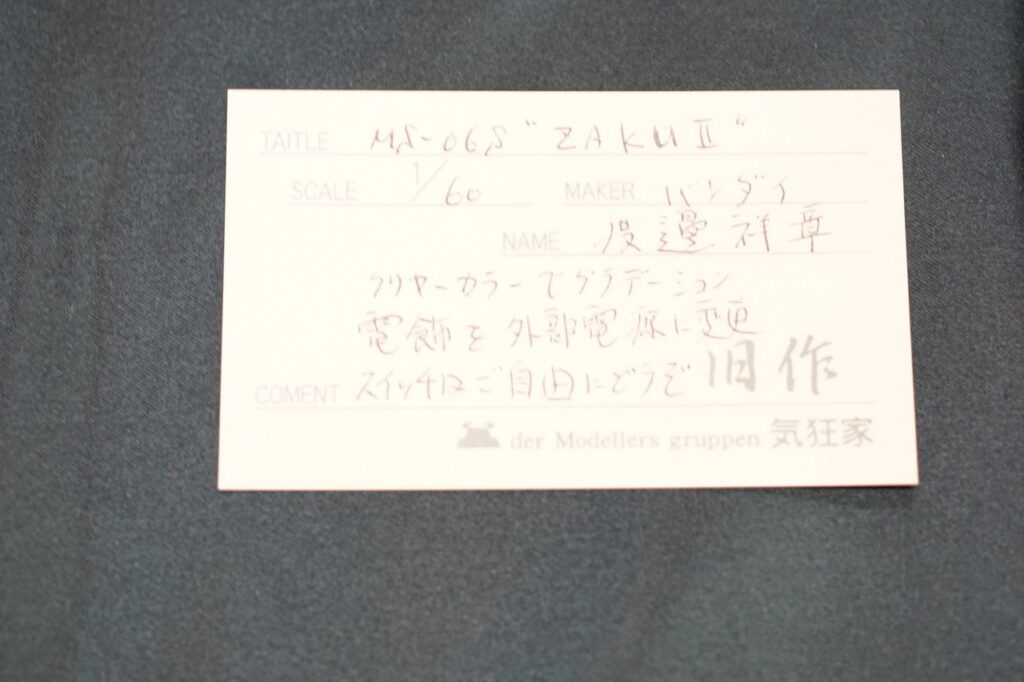 TAITLE MS-06S "ZAKU II"
SCALE 1/60 MAKER バンダイ
NAME 渡邊祥章
クリヤーカラーでグラデーション
電飾を外部電源に変更
COMENT スイッチはご自由にどうぞ 旧作
der Modellers gruppen 気狂家